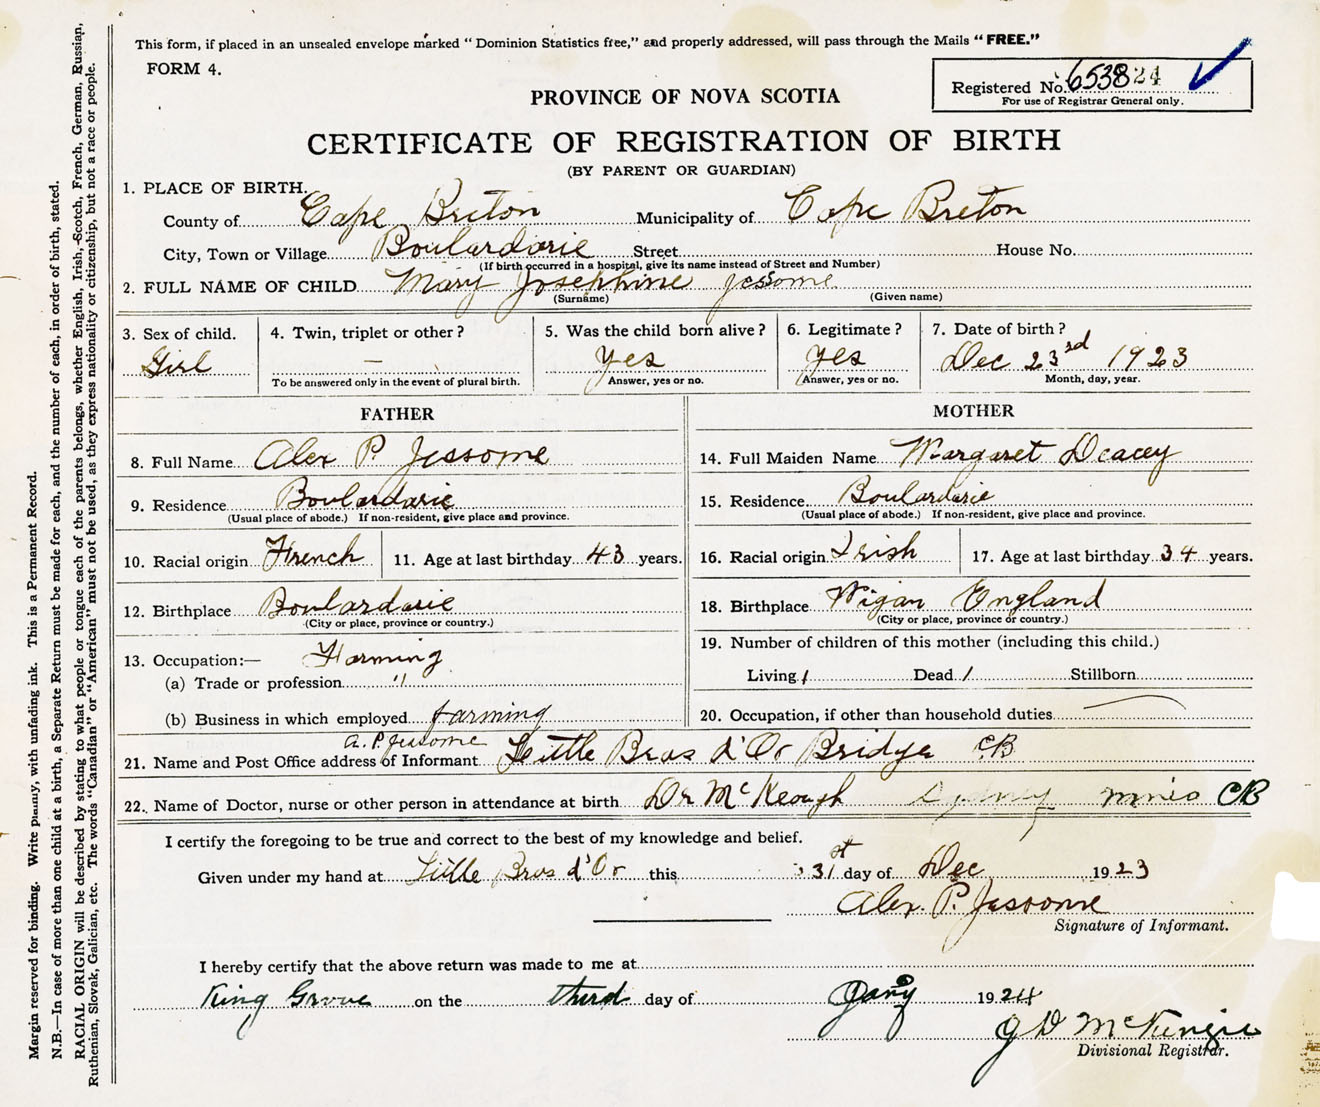 This form, if placed in an unsealed envelope marked "Dominion Statistics free," and properly addressed, will pass through the Mails "FREE."
FORM 4.
Registered No. 653824
For use of Registrar General only.
PROVINCE OF NOVA SCOTIA
CERTIFICATE OF REGISTRATION OF BIRTH
(BY PARENT OR GUARDIAN)
1. PLACE OF BIRTH.
County of Cape Breton Municipality of Cape Breton
City, Town or Village Boulardarie Street House No.
(If birth occurred in a hospital, give its name instead of Street and Number)
2. FULL NAME OF CHILD Mary Josephine Jessome
(Surname) (Given name)
3. Sex of child. 4. Twin, triplet or other? 5. Was the child born alive? 6. Legitimate? 7. Date of birth?
Girl — Yes Yes Dec 23rd 1923
To be answered only in the event of plural birth. Answer, yes or no. Answer, yes or no. Month, day, year.
FATHER
8. Full Name Alex P. Jessome
9. Residence Boulardarie
(Usual place of abode.) If non-resident, give place and province.
10. Racial origin French 11. Age at last birthday 43 years.
12. Birthplace Boulardarie
(City or place, province or country.)
13. Occupation:— Farming
(a) Trade or profession "
(b) Business in which employed farming
MOTHER
14. Full Maiden Name Margaret Deacey
15. Residence Boulardarie
(Usual place of abode.) If non-resident, give place and province.
16. Racial origin Irish 17. Age at last birthday 34 years.
18. Birthplace Wigan England
(City or place, province or country.)
19. Number of children of this mother (including this child.)
Living 1 Dead 1 Stillborn
20. Occupation, if other than household duties
A. P. Jessome
21. Name and Post Office address of Informant Little Bras d'Or Bridge CB
22. Name of Doctor, nurse or other person in attendance at birth Dr McKeough Sydney Mines CB
I certify the foregoing to be true and correct to the best of my knowledge and belief.
Given under my hand at Little Bras d'Or this 31st day of Dec 1923
Alex. P. Jessome
Signature of Informant.
I hereby certify that the above return was made to me at
King Grove on the third day of Jany 1924
J D McKenzie
Divisional Registrar.
Margin reserved for binding. Write plainly, with unfading ink. This is a Permanent Record.
N.B.—In case of more than one child at a birth, a Separate Return must be made for each, and the number of each, in order of birth, stated.
RACIAL ORIGIN will be described by stating to what people or tongue each of the parents belongs, whether English, Irish, Scotch, French, German, Russian,
Ruthenian, Slovak, Galician, etc. The words "Canadian" or "American" must not be used, as they express nationality or citizenship, but not a race or people.